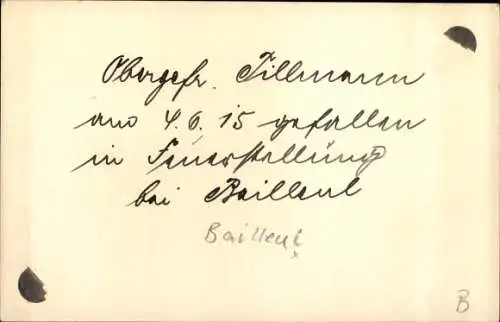 Obergefr. Tillmann
am 4.6.15 gefallen
in Feuerstellung
bei Bailleul
Bailleul
B